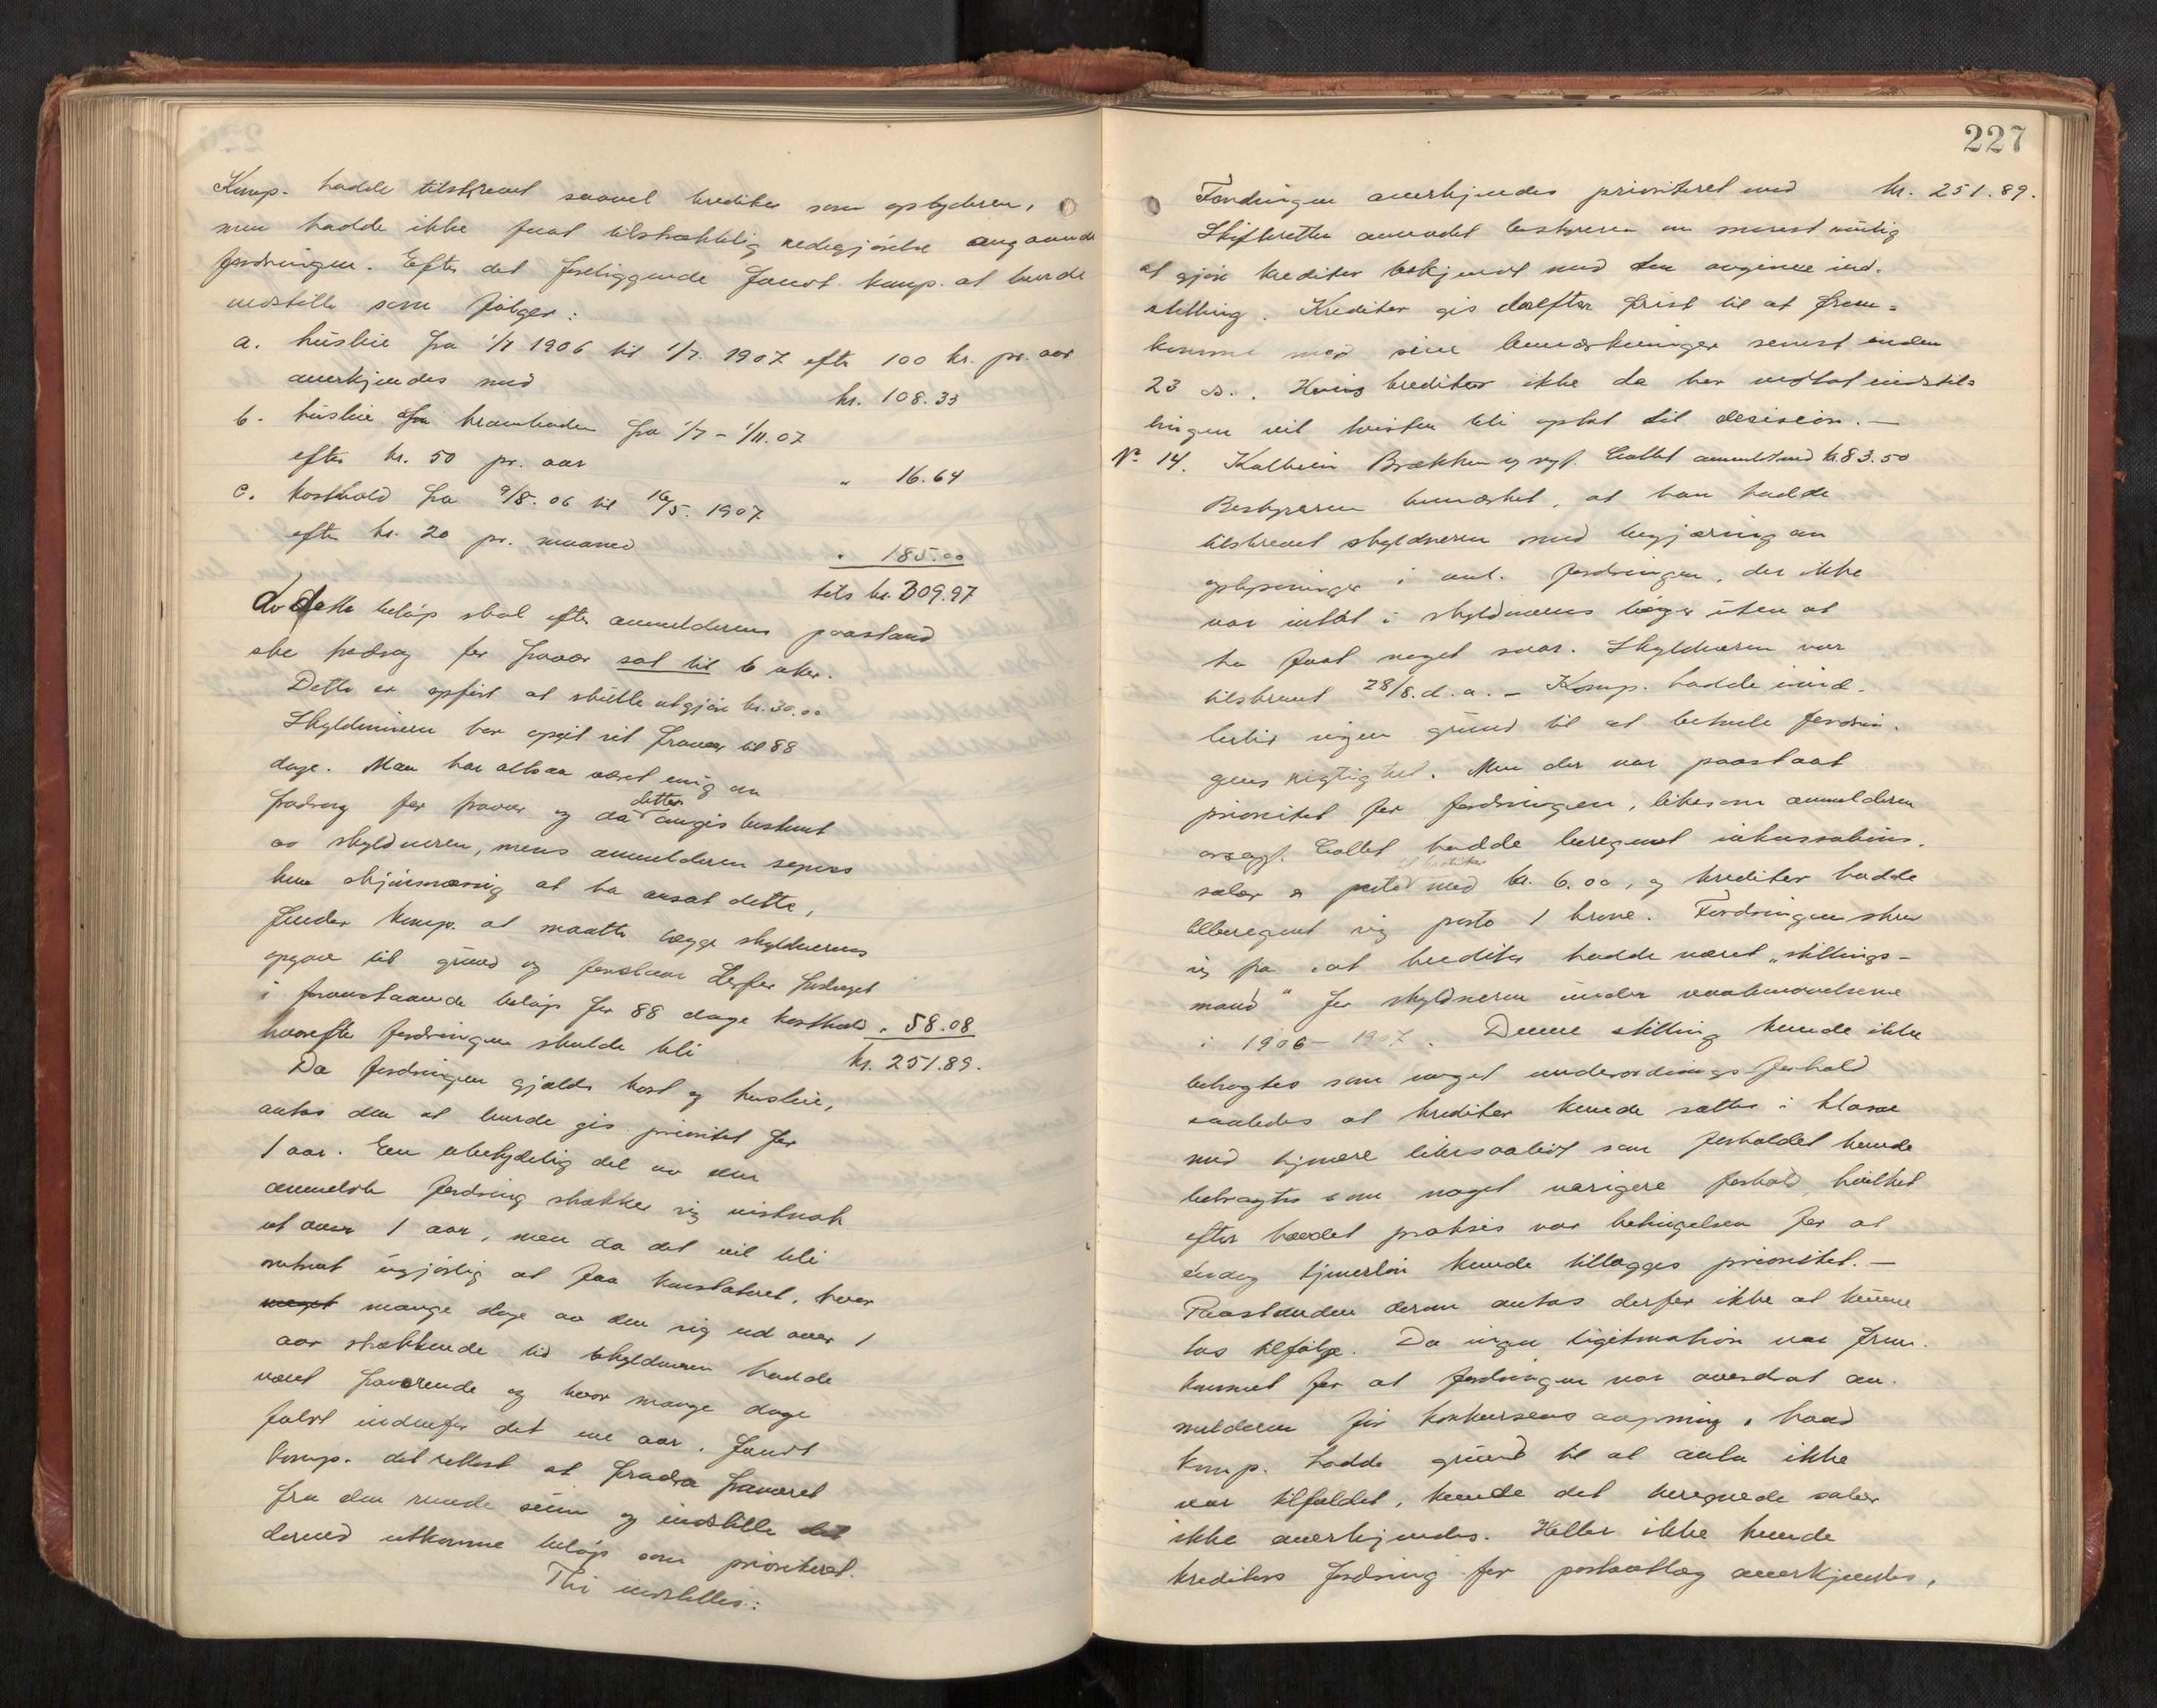 Komp. hadde tilskrevet saavel kreditor som opbyderen,
men hadde ikke faat tilstrækkelig redegjørelse angaaende
fordringen. Efter det foreliggende fandt komp. at burde
indstille som følger:
a. husleie fra 1/7 1906 til 1/7. 1907 efter 100 kr. pr. aar
anerkjendes med kr. 108.33
b. husleie fra krambuden fra 1/7 - 1/11.07
efter kr. 50 pr. aar " 16.64
c. kosthold fra 9/8. 06 til 16/5. 1907
efter kr. 20 pr. maaned " 185.00
tils kr. 309.97
Av dette beløp skal efter anmelderens paastand
ske fradrag for fravær sat til 6 uker.
Dette er opført at skulle utgjøre kr. 30.00
Skyldneren har opgit sit fravær til 88
dage. Man har altsaa været enig om
fradrag for fravær og da dette angis bestemt
av skyldneren, mens anmelderen synes
kun skjønsmæssig at ha ansat dette,
finder komp. at maatte lægge skyldnerens
opgave til grund og foreslaar derfor fradraget
i foranstaaende beløp for 88 dage kosthold " 58.08
hvorefter fordringen skulde bli kr. 251.89.
Da fordringen gjælder kost og husleie,
antas den at burde gis prioritet for
1 aar. En ubetydelig del av den
anmeldte fordring strækker sig vistnok
ut over 1 aar, men da det vil bli
omtrent ugjørlig at faa konstateret, hvor
meget mange dage av den sig ud over 1
aar strækkende tid skyldneren hadde
været fraværende og hvor mange dage
faldt indenfor det ene aar, fandt
komp. det rettest at fradra fraværet
fra den runde sum og indstille det
derved utkomne beløp som prioriteret.
Thi indstilles:
227
Fordringen anerkjendes prioriteret med kr. 251.89.
Skifteretten anmodet bestyreren om snarest mulig
at gjøre kreditor bekjendt med den avgivne ind-
stilling. Kreditor gis derefter frist til at frem-
komme med sine bemærkninger senest inden
23 ds.. Hvis kreditor ikke da har vedtat indstil-
lingen vil tvisten bli optat til desision. —
No 14. Brækken og sagf. Collet anmeldt med kr. 83.50
Bestyreren bemærket, at han hadde
tilskrevet skyldneren med begjæring om
oplysninger i anl. fordringen, der ikke
var indtat i skyldnerens bøger uten at
ha faat noget svar. Skyldneren var
tilskrevet 28/8. d. a. — Komp. hadde imid-
lertid ingen grund til at betvile fordrin-
gens rigtighet. Men der var paastaat
prioritet for fordringen, likesom anmelderen
o.r.sagf. Collet hadde beregnet inkassations-
salær og porto til kreditor med kr. 6.00, og kreditor hadde
tilberegnet sig porto 1 krone. Fordringen skrev
sig fra at kreditor hadde været "stillings-
mand" for skyldneren under vaabenøvelserne
i 1906 - 1907. Denne stilling kunde ikke
betragtes som noget underordnings-forhold
saaledes at kreditor kunde sættes i klasse
med tjenere likesaalidt som forholdet kunde
betragtes som noget varigere forhold, hvilket
efter hævdet praksis var betingelsen for at
endog tjenerløn kunde tillægges prioritet. —
Paastanden derom antas derfor ikke at kunne
tas tilfølge. Da ingen legitimation var frem-
kommet for at fordringen var overdrat an-
melderen før konkursens aapning, hvad
komp. hadde grund til at anta ikke
var tilfældet, kunde det beregnede salær
ikke anerkjendes. Heller ikke kunde
kreditors fordring for portoutlæg anerkjendes,